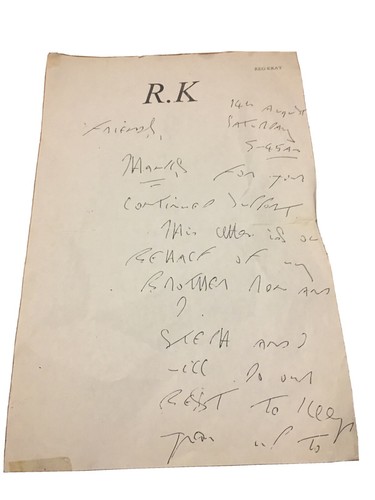 REG KRAY
R.K
14th August
Friends, SATURDAY
5-45AM
Thanks FOR your
continued support
This letter is on
BEHALF OF my
BROTHER RON AND
I.
STEPH AND I
will Do our
BEST TO Keep
you up To